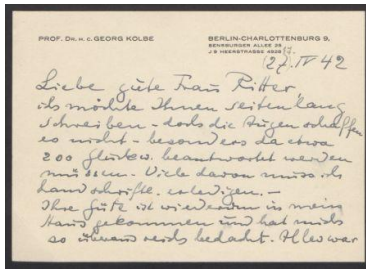 PROF. DR. H. C. GEORG KOLBE
BERLIN-CHARLOTTENBURG 9,
SENSBURGER ALLEE 26
J 9 HEERSTRASSE 4525
27. IV 42
Liebe gute Frau Ritter
ich möchte Ihnen seitenlang
schreiben - doch die Augen schaffen
es nicht - besonders da etwa
200 Glückw. beantwortet werden
müssen. Viele davon muss ich
handschriftl. erledigen. -
Ihre Güte ist wiederum in mein
Haus gekommen und hat mich
so überaus reich bedacht. Alles war